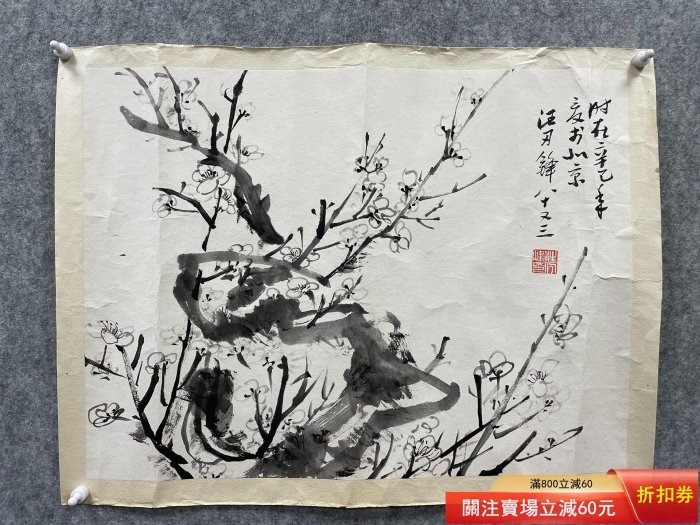 时在辛巳年
夏于北京
汪刃鋒八十又三
滿800立減60
關注賣場立減60元
折扣券